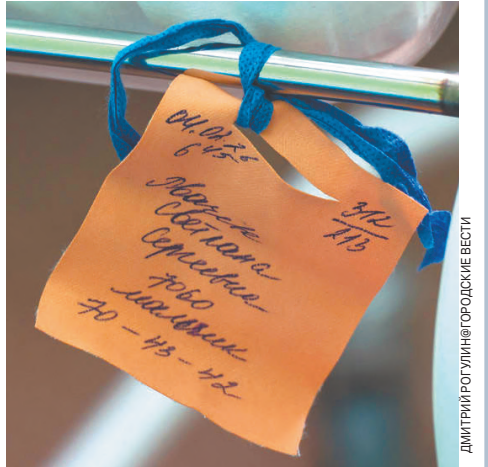 6 45
312
213
Светлана
Сергеевна
1060
мальчик
70-43-42
ДМИТРИЙ РОГУЛИН@ГОРОДСКИЕ ВЕСТИ